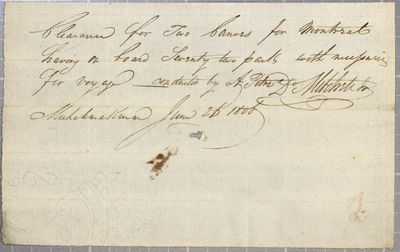 Clearance for Two Canoes for Montreal
having on board Seventy two packs with necessaries
for voyage conducted by A. Dr Mitchell
Michilimackinac June 26 1806